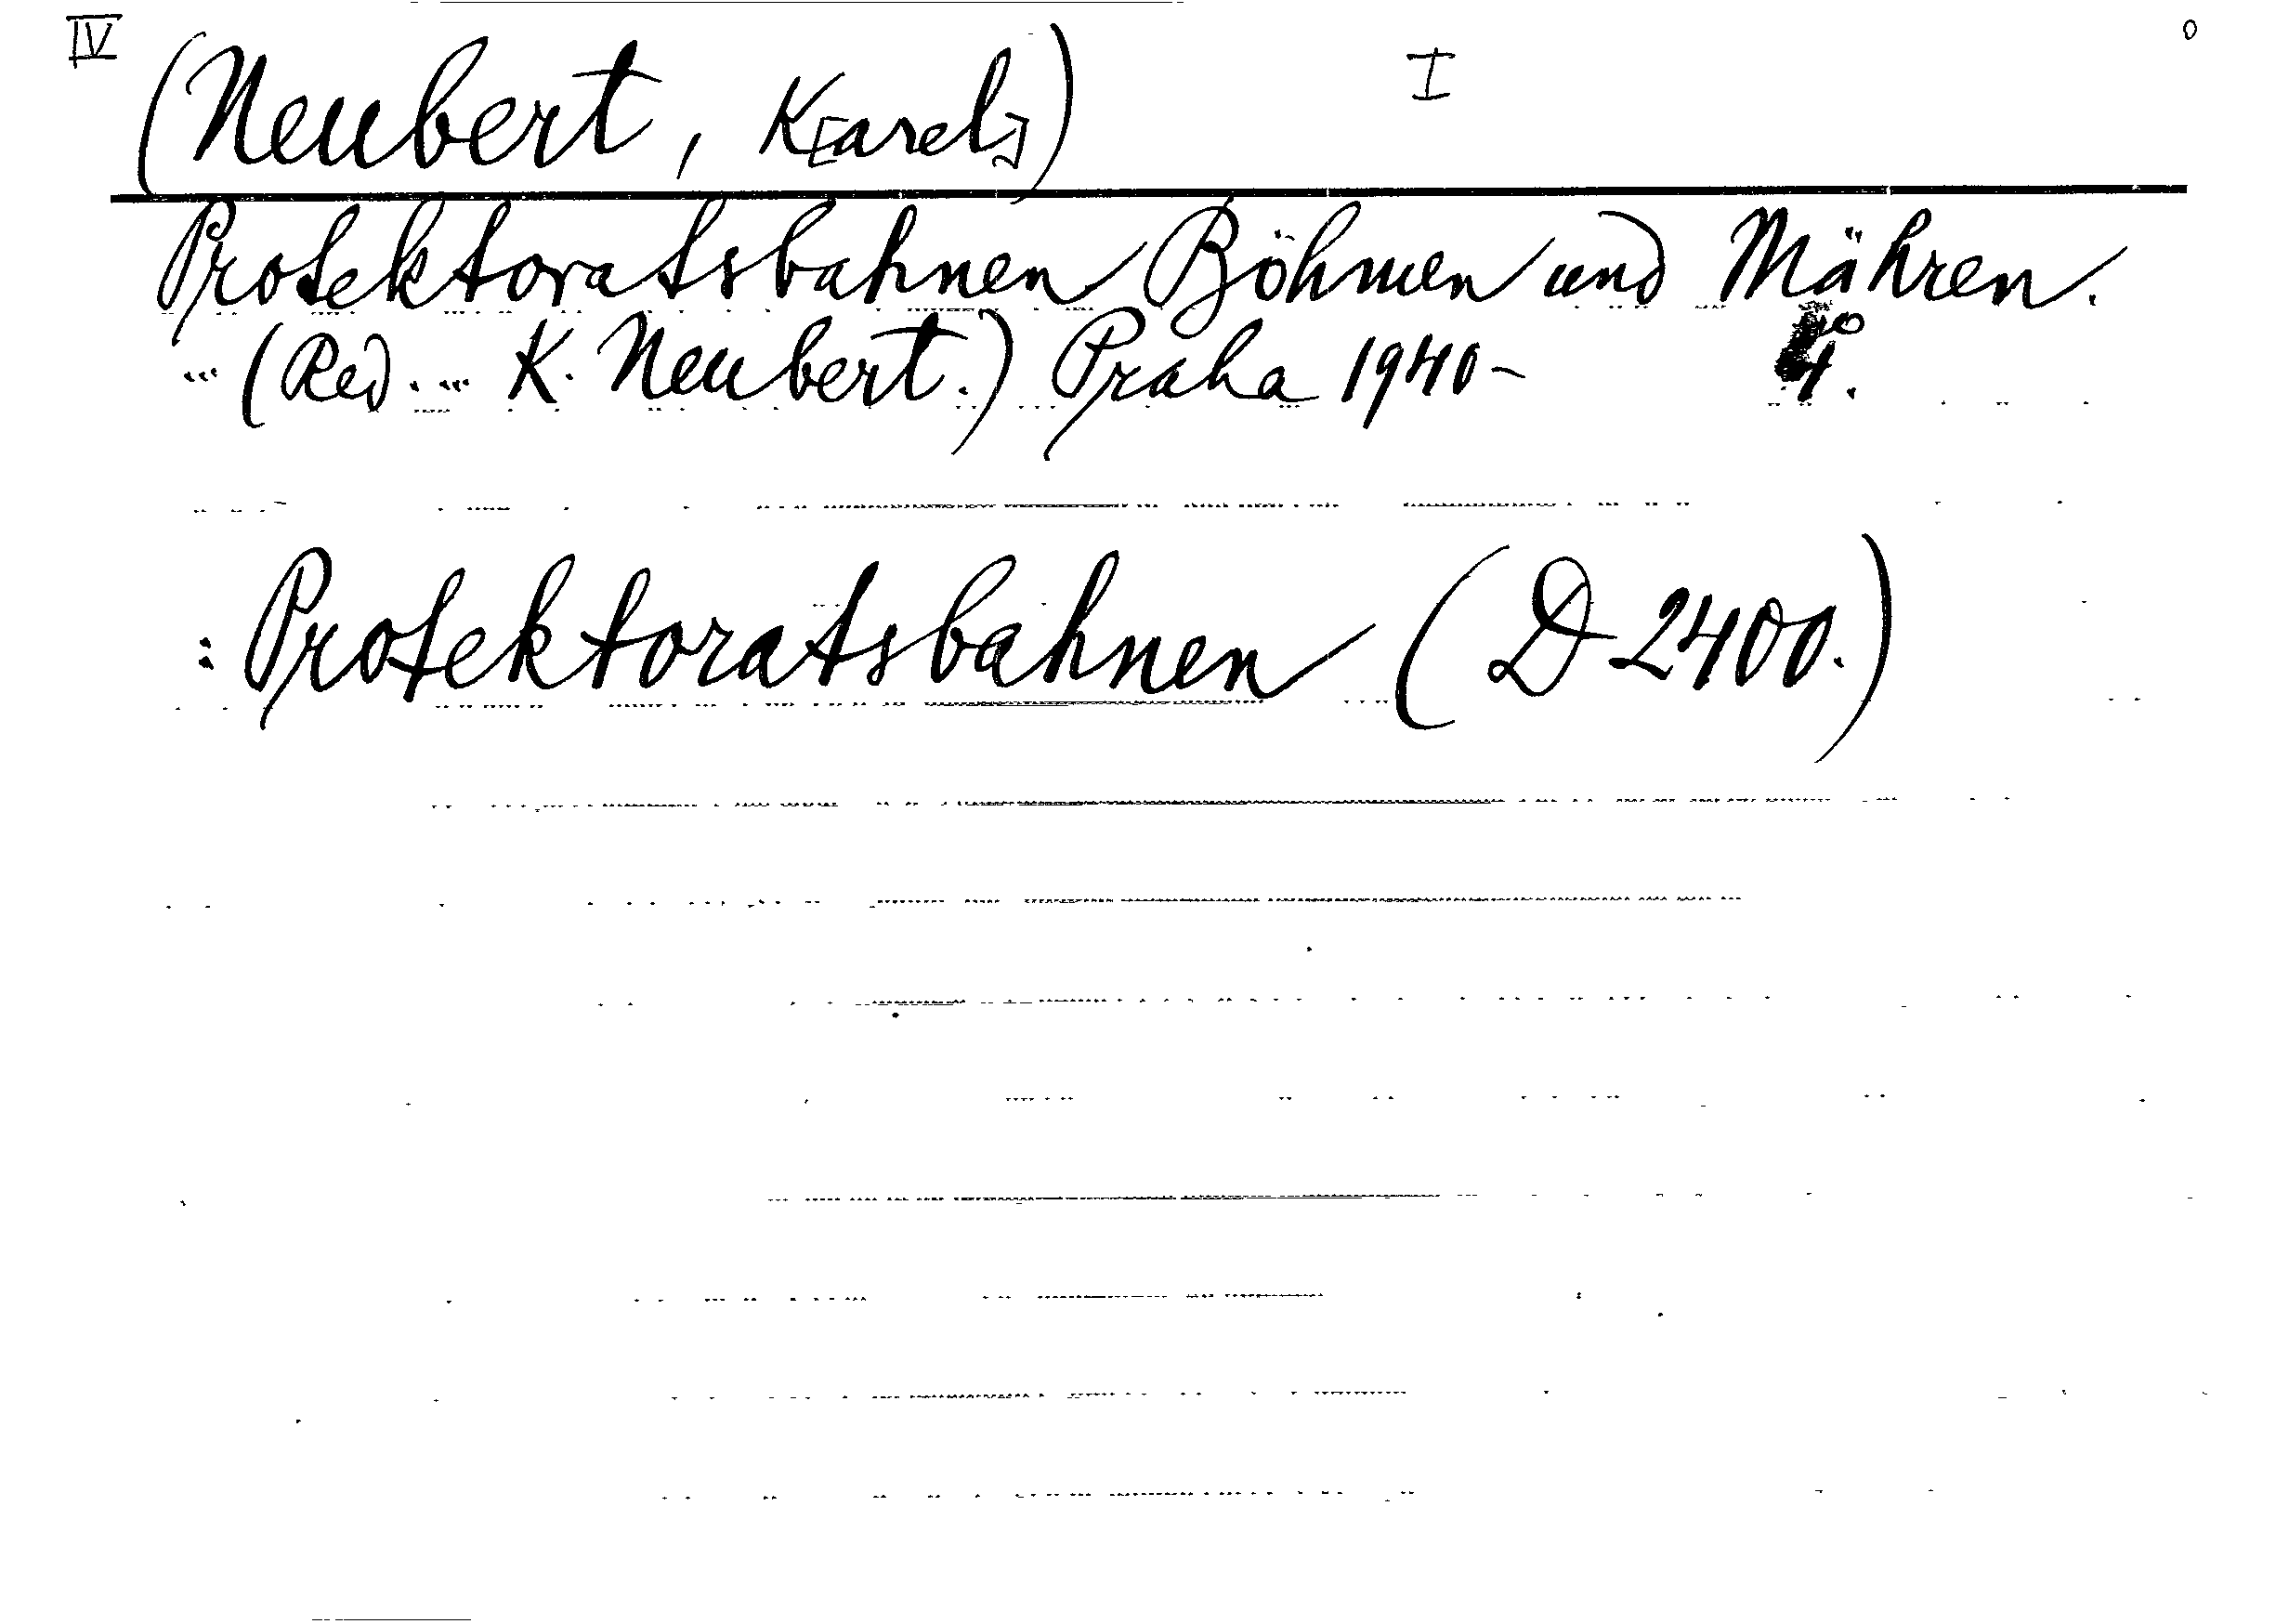 IV (Neubert, K[arel]) I o
Protektoratsbahnen Böhmen und Mähren.
... (Red. ... K. Neubert.) Praha 1940- 4°.
: Protektoratsbahnen (D 2400.)